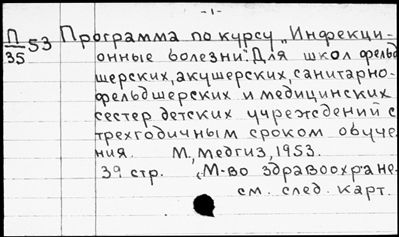 -1-
П/35 53 Программа по курсу „Инфекци-
онные болезни". Для школ фельд
шерских, акушерских, санитарно-
фельдшерских и медицинских
сестер детских учреждений с
трехгодичным сроком обуче
ния. М., Медгиз, 1953.
39 стр. (М-во здравоохране-
см. след. карт.